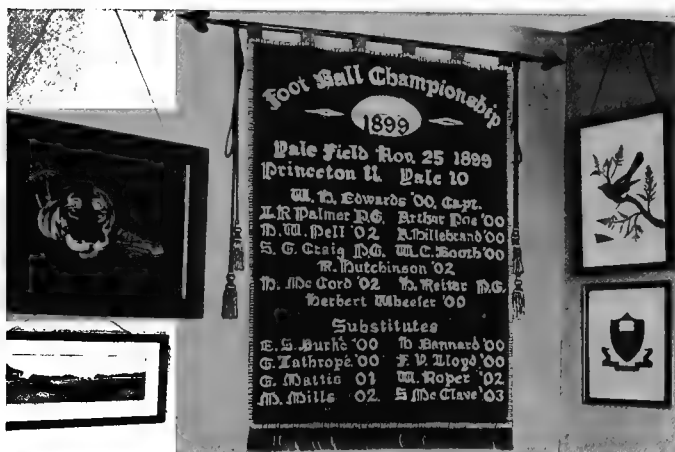 Foot Ball Championship
1899
Yale Field Nov. 25 1899
Princeton 11 Yale 10
W. H. Edwards '00, Capt.
L.R Palmer P.G. Arthur Poe '00
H. W. Pell '02 A. Hillebrand '00
S. G. Craig P.G. W.C. Booth '00
R. Hutchinson '02
H. Mc Cord '02 H. Reiter P.G.
Herbert Wheeler '00
Substitutes
E. S. Burke '00 D Bannard '00
G. Lathrope '00 F. V. Lloyd '00
G. Mattis 01 W. Roper '02
M. Mills 02 S Mc Clave '03